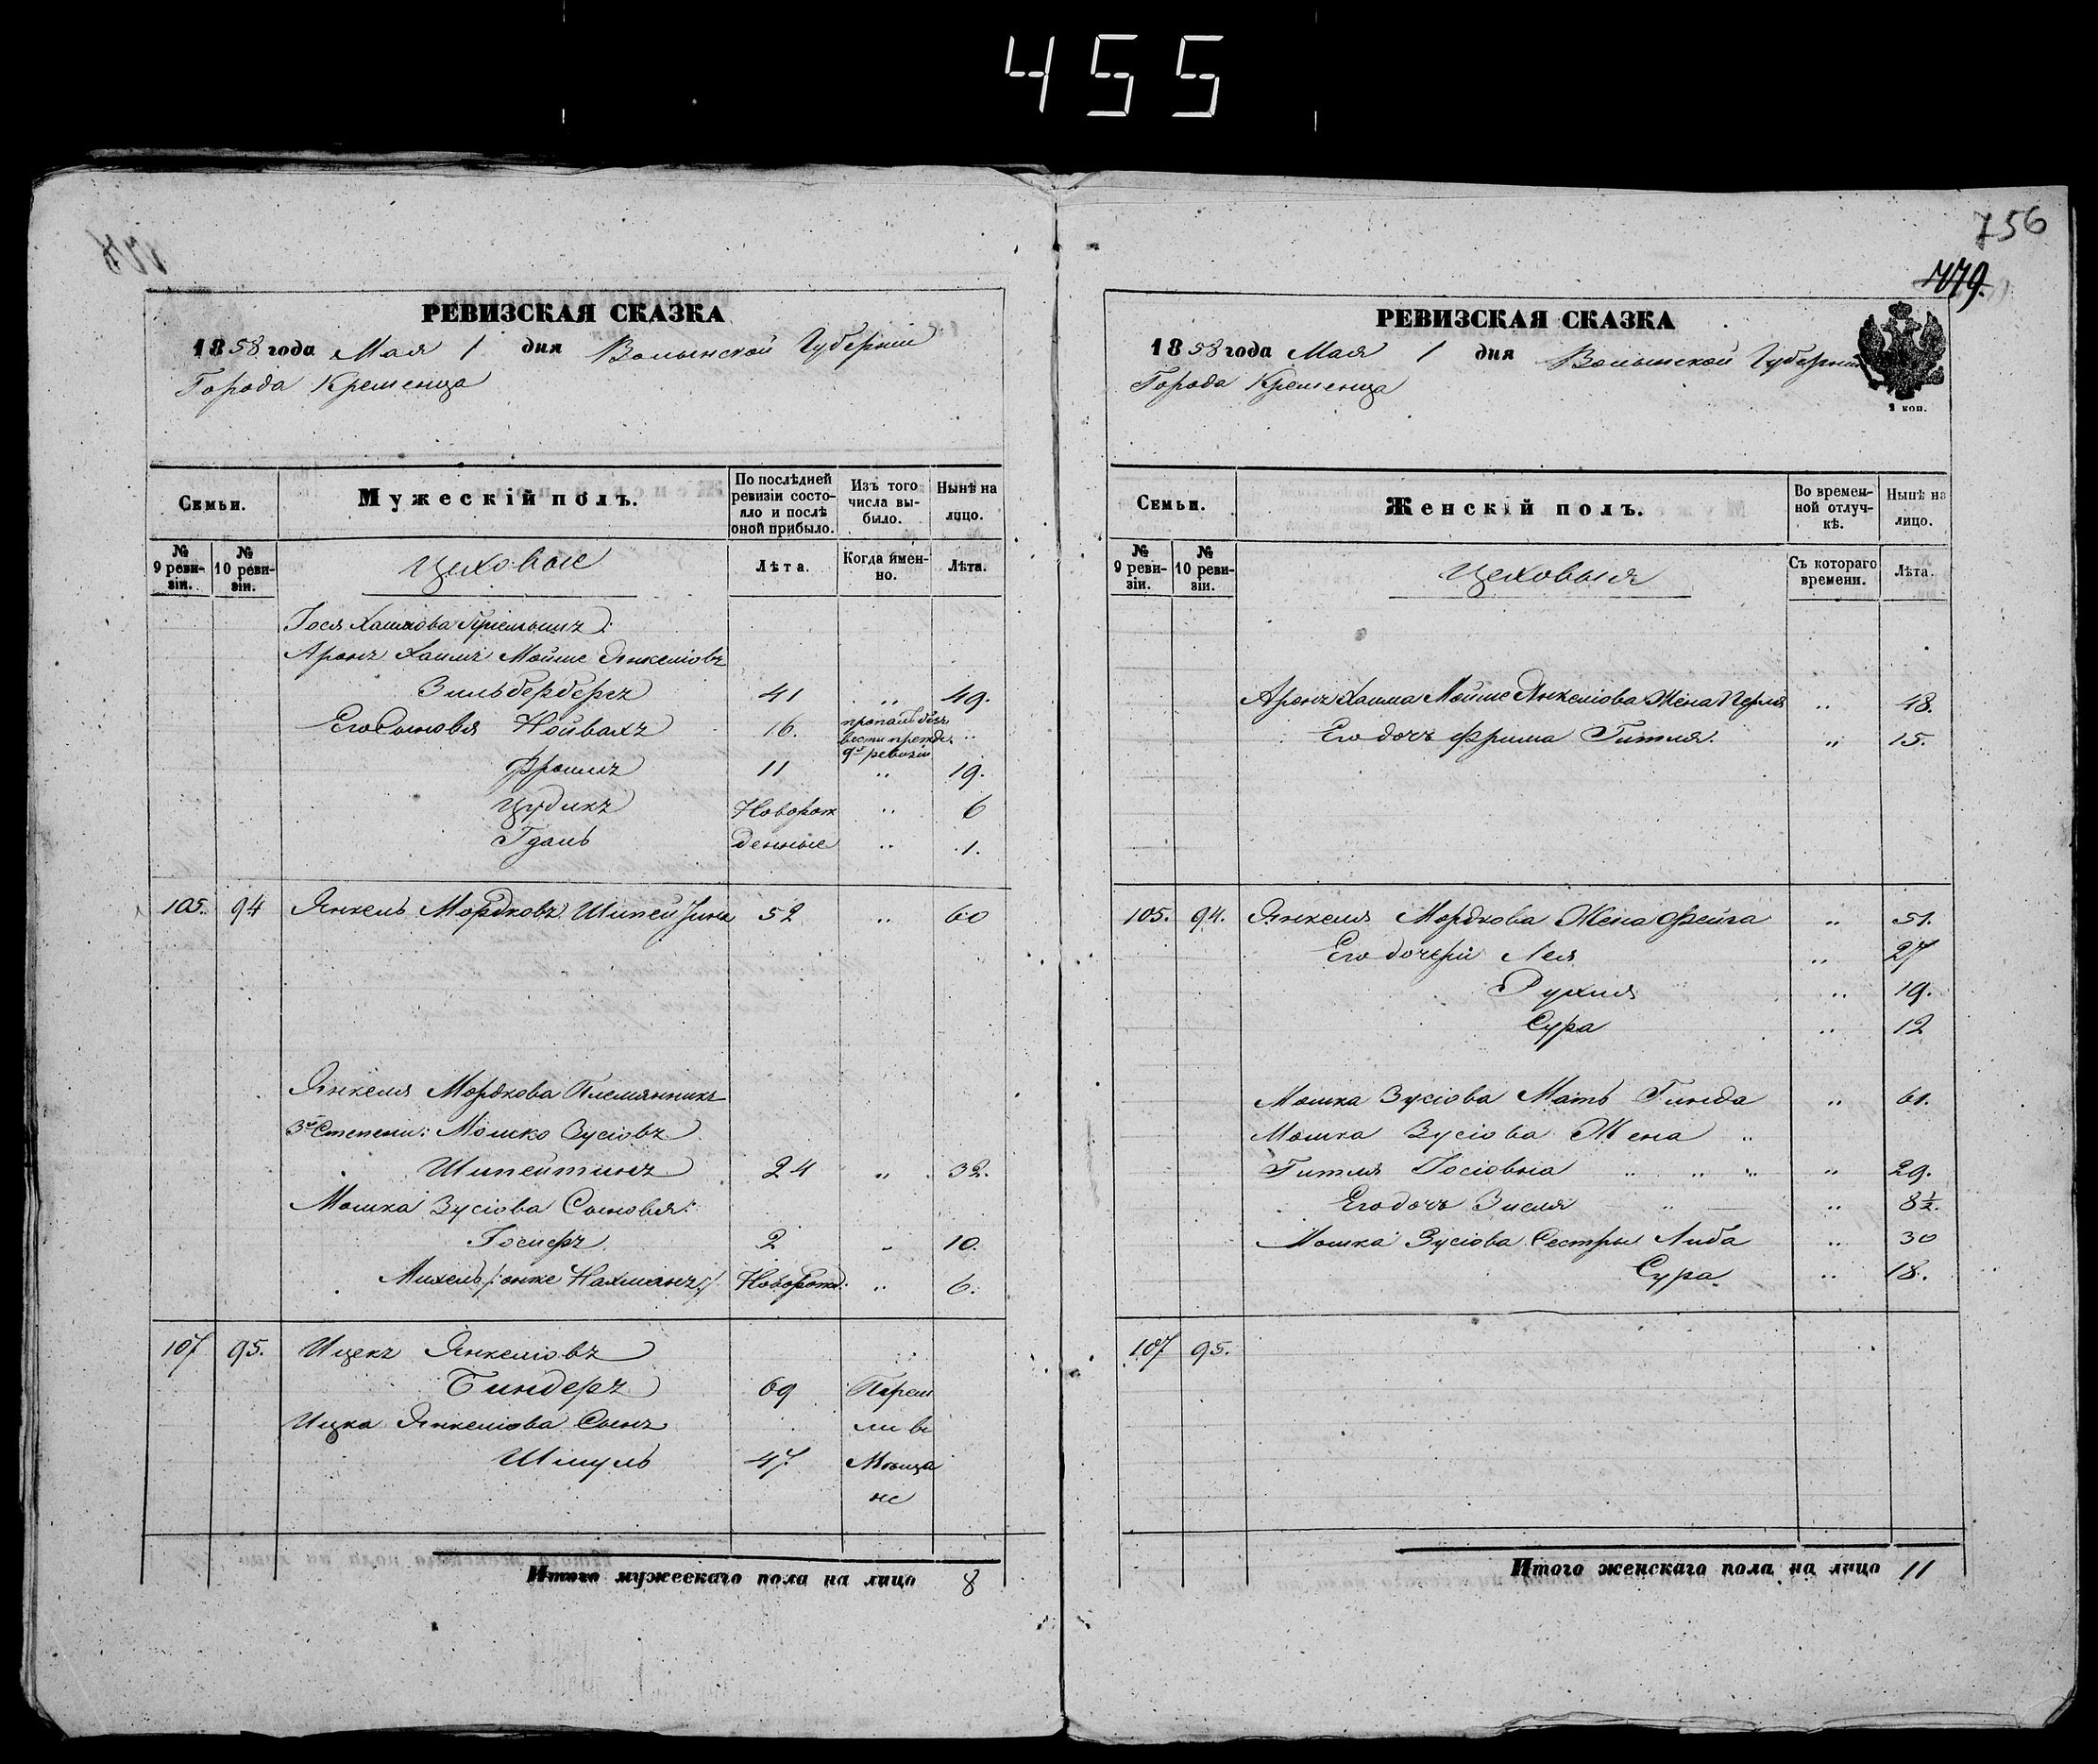 455
РЕВИЗСКАЯ СКАЗКА
1858 года Мая 1 дня Волынской Губерніи
Города Кременца
Семьи.
Мужескій полъ.
По послѣдней ревизіи состояло и послѣ оной прибыло.
Изъ того числа выбыло.
Нынѣ на лицо.
№ 9 ревизіи.
№ 10 ревизіи.
Цеховые
Лѣта.
Когда именно.
Лѣта.
Іося Хаимова
Аронъ Хаимъ Мойше Янкеліовъ
Зильбербергъ 41 „ 49.
Его Сыновья Нойвахъ 16. пропалъ безъ вести прежде 9й ревизіи „
Фроимъ 11 „ 19.
Цудикъ Новорож „ 6
Гдаль денные „ 1.
105. 94 Янкель Мордковъ 52 „ 60
Янкеля Мордкова Племянникъ
3й Степени: Мошко Зусіовъ
Шпейтинъ 24 „ 32.
Мошка Зусіова Сыновья:
Іосиеръ 2 „ 10.
Михель /: онже Нахманъ :/ Новорожд: „ 6.
107 95. Ицекъ Янкеліовъ
Биндеръ 69 Переш
Ицка Янкеліова Сынъ ли въ
Шмуль 47. Мѣща
не
Итого мужескаго пола на лицо 8
756
779.
РЕВИЗСКАЯ СКАЗКА
1858 года Мая 1 дня Волынской Губерніи
Города Кременца
1 коп.
Семьи.
Женскій полъ.
Во временной отлучкѣ.
Нынѣ на лицо.
№ 9 ревизіи.
№ 10 ревизіи.
Цеховыя
Съ котораго времени.
Лѣта.
Аронъ Хаима Мойше Янкеліова Жена Перля „ 48.
Его дочь Фрима Гитля. „ 15.
105. 94. Янкеля Мордкова Жена Фейга „ 51.
Его дочери Лея „ 27
Рухля „ 19.
Сура „ 12
Мошка Зусіова Мать Гинда „ 61.
Мошка Зусіова Жена „
Гитля Іосіовна „ „ „ „ 29.
Его дочь Зисля „ „ 8½.
Мошка Зусіова Сестры Либа „ 30
Сура „ 18.
107 95.
Итого женскаго пола на лицо 11